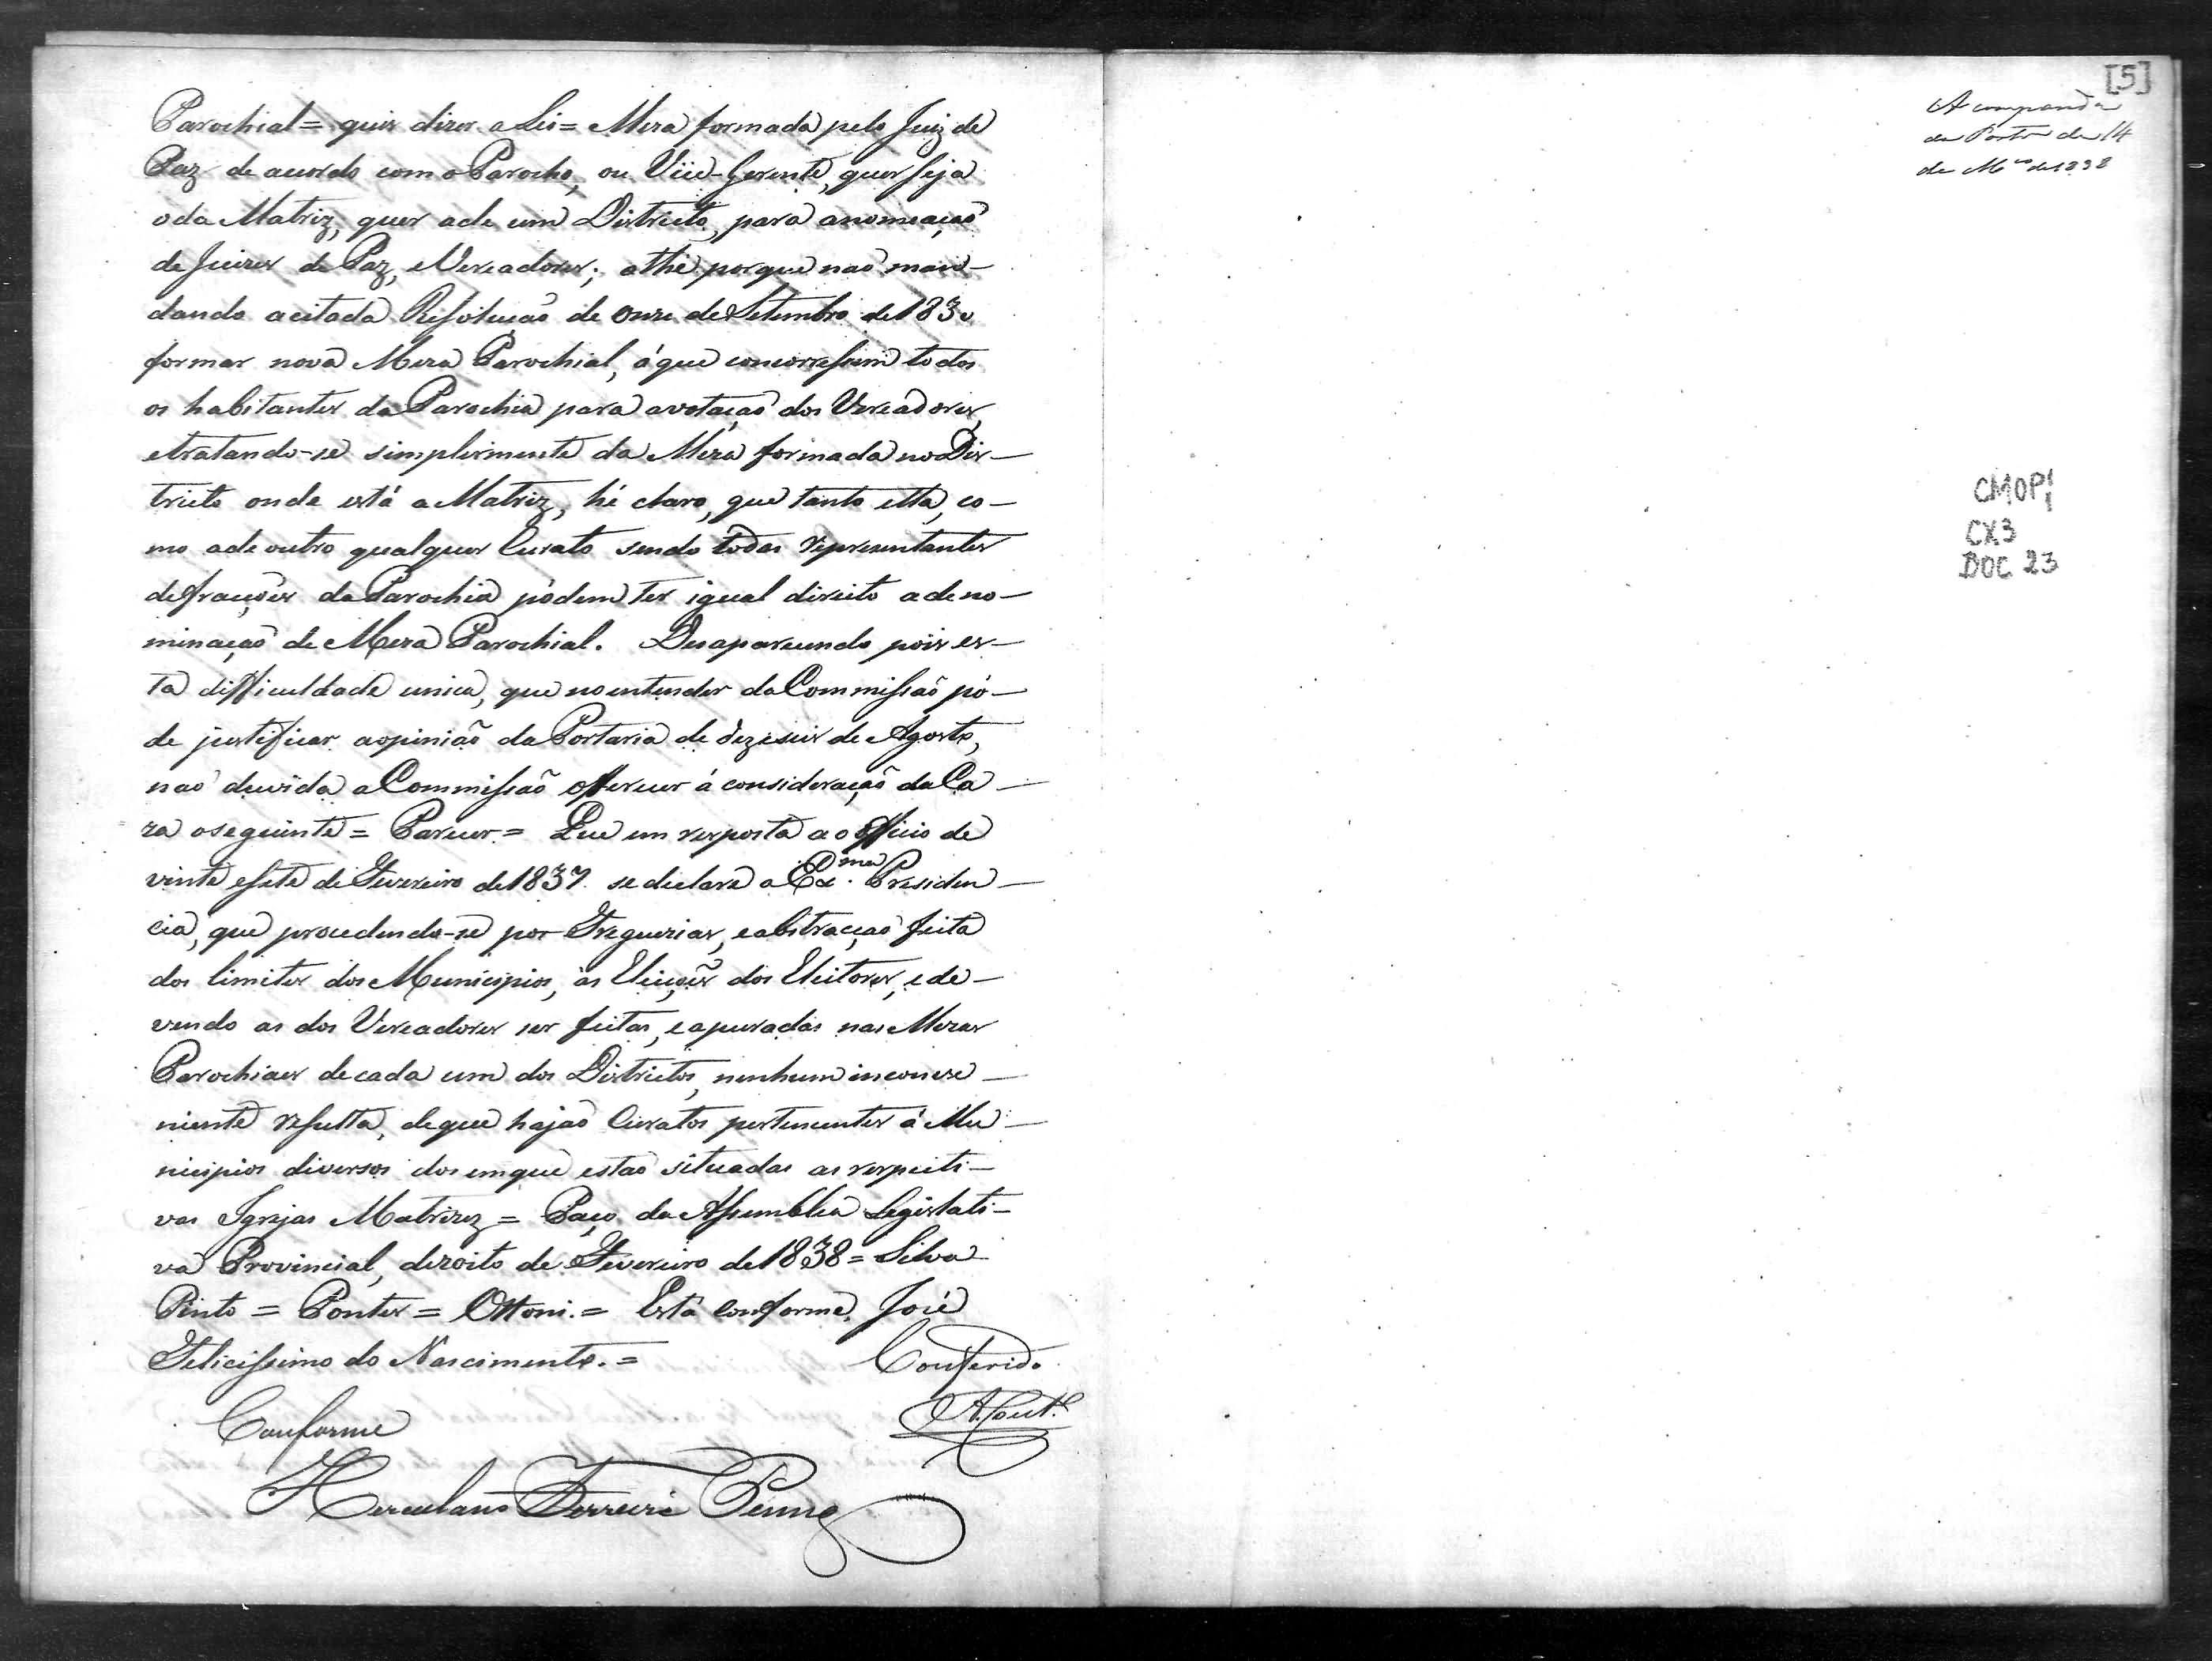 Parochial = quis dizer a Lei = Meza formada pelo Juiz de
Paz de acordo com o Parocho, ou Vice-Gerente, quer seja
o da Matriz, quer a de um Districto, para a nomeaçaõ
de Juizes de Paz, e Vereadores; athé porque naõ man-
dando a citada Resoluçaõ de onze de Setembro de 1830
formar nova Meza Parochial, á que concorressem todos
os habitantes da Parochia para a votaçaõ dos Vereadores,
e tratando-se simplesmente da Meza formada no Dis-
tricto onde está a Matriz, hé claro, que tanto esta, co-
mo a de outro qualquer Curato sendo todas representantes
de fracções da Parochia pódem ter igual direito a deno-
minaçaõ de Meza Parochial. Desaparecendo pois es-
ta difficuldade unica, que no entender da Commissaõ pó-
de justificar a opiniaõ da Portaria de dezeseis de Agosto,
naõ duvida a Commissaõ offerecer á consideraçaõ da Ca-
za o seguinte = Parecer = Que em resposta ao officio de
vinte e sete de Fevereiro de 1837 se declare a Ex.ma Presiden-
cia, que procedendo-se por Freguezias, e abstracçaõ feita
dos limites dos Municipios, ás Eleições dos Eleitores, e de-
vendo as dos Vereadores ser feitas, e apuradas nas Mezas
Parochiaes de cada um dos Districtos, nenhum inconve-
niente resulta, de que hajaõ Curatos pertencentes á Mu-
nicipios diversos dos em que estaõ situadas as respecti-
vas Igrejas Matrizes = Paço da Assemblea Legislati-
va Provincial, dezoito de Fevereiro de 1838 = Silva
Pinto = Pontes = Ottoni. = Está conforme, José
Felicissimo do Nascimento. =
Conferido
A. Cout.º
Conforme
Herculano Ferreira Penna
[5]
Acompanha
da Port.ª de 14
de M.ço de 1838
CMOP
CX3
DOC 23